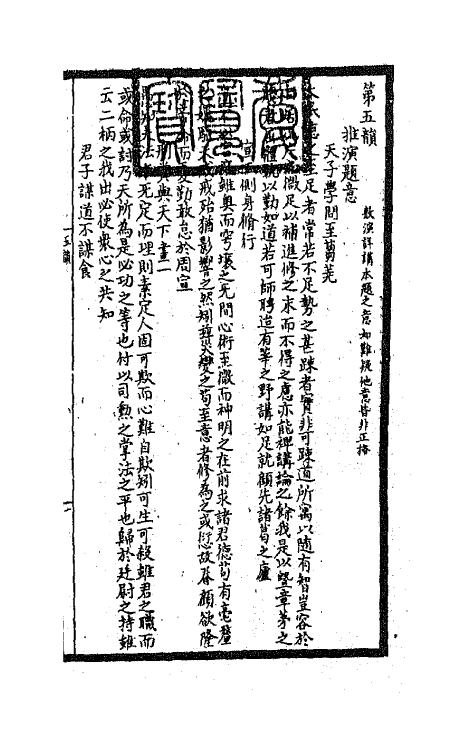 第五韻
推演題意 敷演詳講本題之意如難疑他意皆非正格
天子學問至芻蕘
之至足者常若不足勢之甚踈者實非可踈道所寓以隨有智豈容於
微足以補進修之求而不得之意亦能裨講論之餘我是以曁章茅之
體貌以勤如道若可師聘造有莘之野講如足就顧先諸葛之廬
側身脩行
雖奥而穹壤之无間心術至微而神明之在前求諸君德苟有毫釐
戒殆猶影響之然矧兹災變之苟至意者修為之或愆故眷顧欲隆
命而憂勤敢怠於周宣
與天下畫一
知夫法无定而理則素定人固可欺而心難自欺矧可生可殺雖君之職而
或命或討乃天所為是必功之等也付以司勲之掌法之平也歸於廷尉之持雖
云二柄之我出必使衆心之共知
君子謀道不謀食
五韻